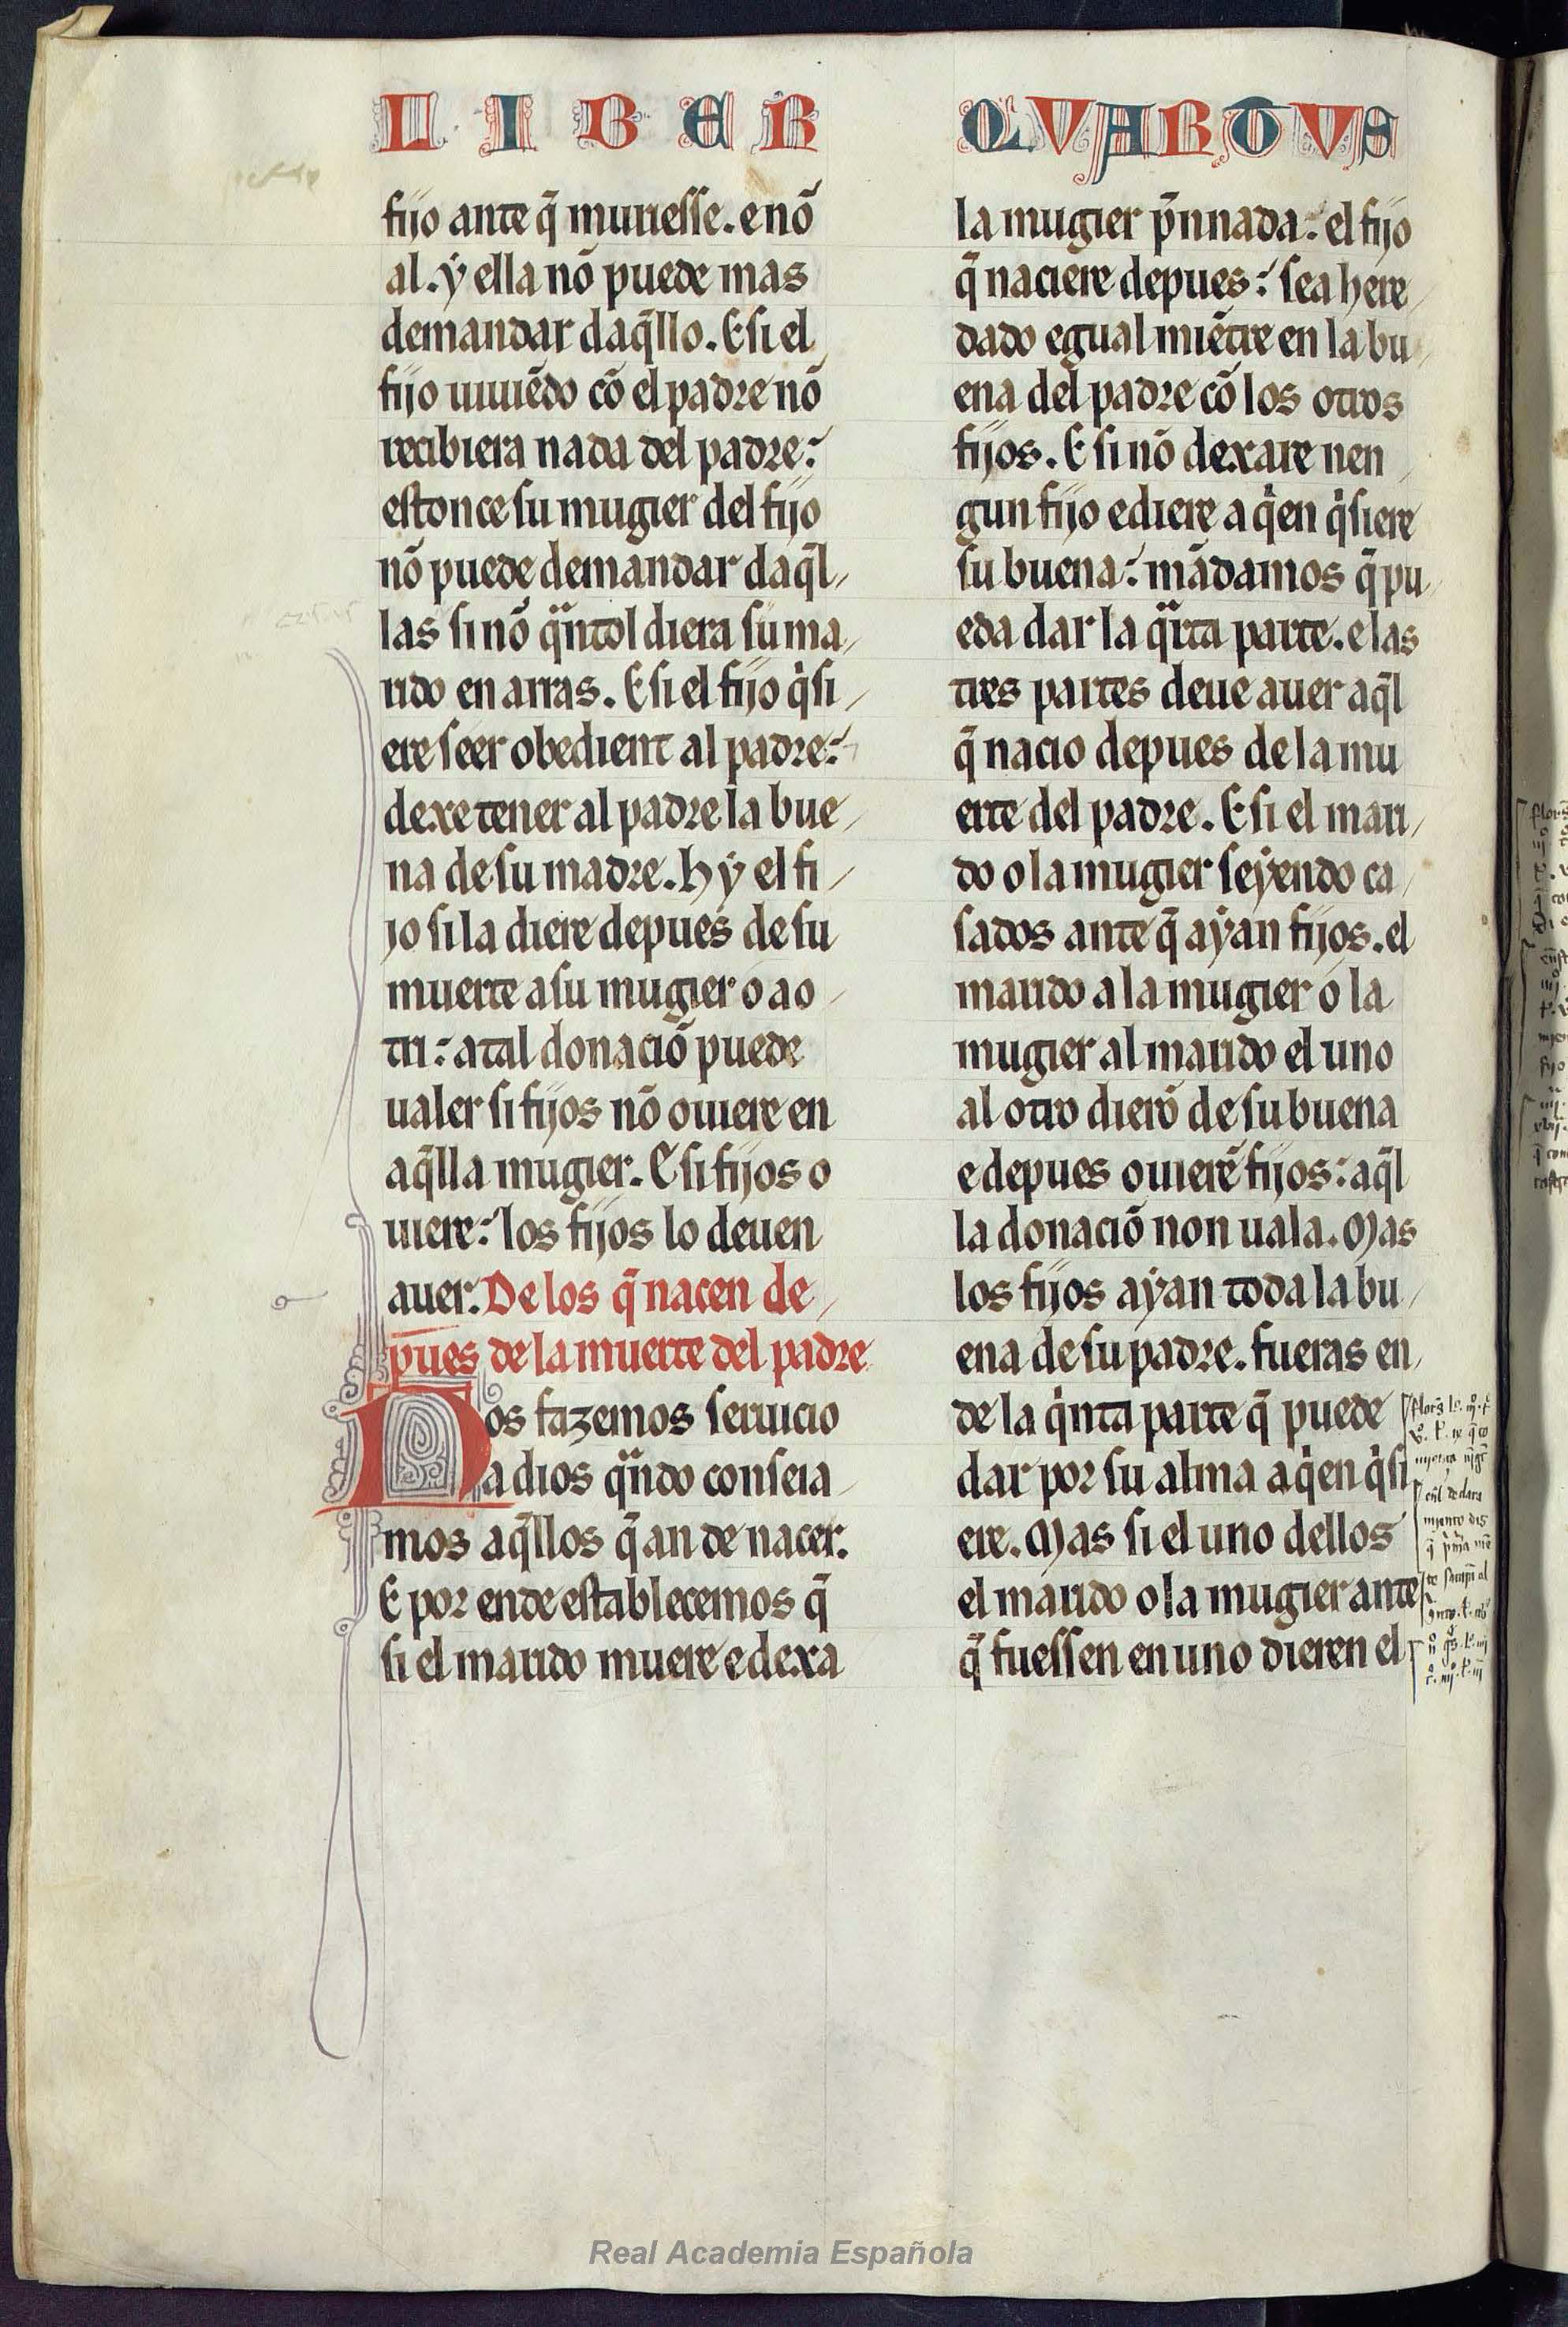 LIBER QUARTUS
fijo ante q̃ muriesse. e nõ
al. ẏ ella nõ puede mas
demandar daq̃llo. E si el
fijo uiuiẽdo cõ el padre nõ
recibiera nada del padre:
estonce su mugier del fijo
nõ puede demandar daq̃l
las si nõ qᵃntol diera su ma
rido en arras. E si el fijo qⁱsi
ere seer obedient al padre:
dexe tener al padre la bue
na de su madre. h ẏ el fi
jo si la diere depues de su
muerte a su mugier o a o
tri: atal donaciõ puede
ualer si fijos nõ ouiere en
aq̃lla mugier. E si fijos o
uiere: los fijos lo deuen
auer. De los q̃ nacen de
pues de la muerte del padre
Nos fazemos seruicio
a dios qᵃndo conseia
mos aq̃llos q̃ an de nacer.
E por ende establecemos q̃
si el marido muere e dexa
la mugier p̃nnada: el fijo
q̃ naciere depues: sea here
dado egual miẽtre en la bu
ena del padre cõ los otros
fijos. E si nõ dexare nen
gun fijo e diere a qⁱen qⁱsiere
su buena: mãdamos q̃ pu
eda dar la qᵃrta parte. e las
tres partes deue auer aq̃l
q̃ nacio depues de la mu
erte del padre. E si el mari
do o la mugier seẏendo ca
sados ante q̃ aẏan fijos. el
marido a la mugier o la
mugier al marido el uno
al otro dierõ de su buena
e depues ouierẽ fijos: aq̃l
la donaciõ non uala. Mas
los fijos aẏan toda la bu
ena de su padre. fueras en
de la qⁱnta parte q̃ puede
dar por su alma a qⁱen qⁱsi
ere. Mas si el uno dellos
el marido o la mugier ante
q̃ fuessen en uno dieren el
Real Academia Española